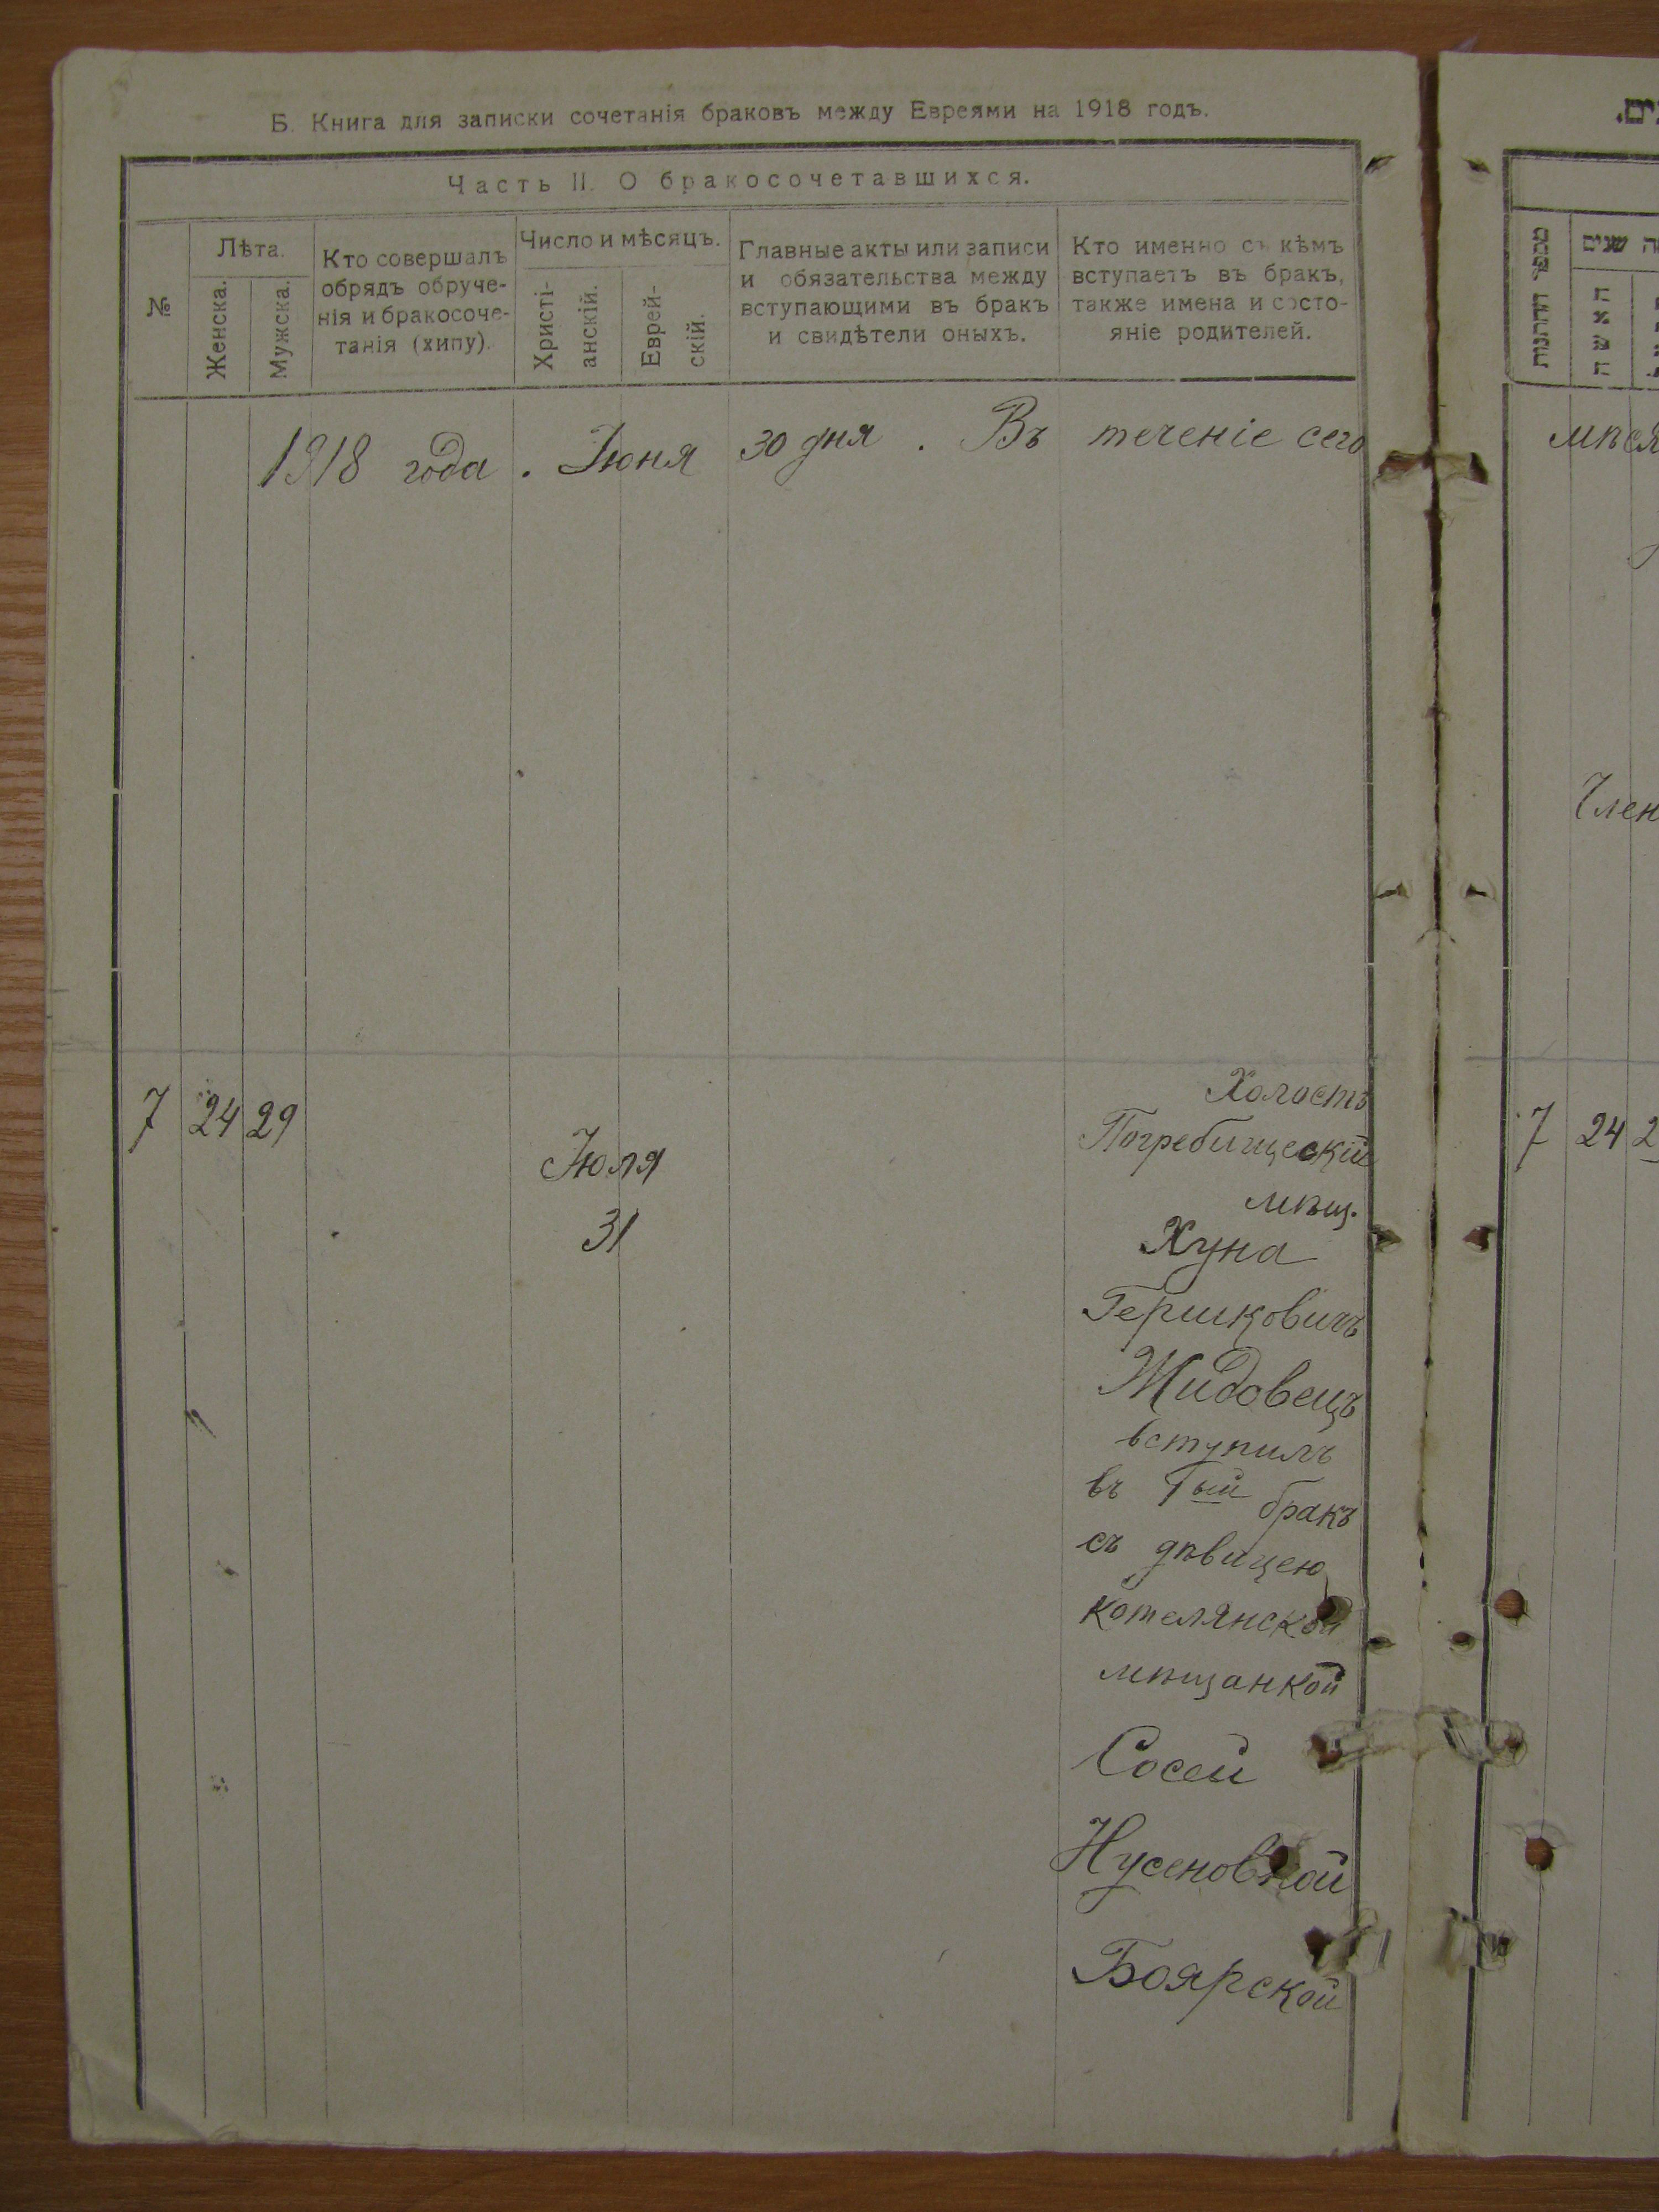 Б. Книга для записки сочетанія браковъ между Евреями на 1918 годъ.
Часть II. О бракосочетавшихся.
№
Лѣта.
Женска.
Мужска.
Кто совершалъ
обрядъ обруче-
нія и бракосоче-
танія (хипу).
Число и мѣсяцъ.
Христі-
анскій.
Еврей-
скій.
Главные акты или записи
и обязательства между
вступающими въ бракъ
и свидѣтели оныхъ.
Кто именно съ кѣмъ
вступаетъ въ бракъ,
также имена и состо-
яніе родителей.
1918 года. Іюня 30 дня. Въ теченіе сего
7 24 29
Іюля
31
Холостъ
Погребищескій
мѣщ.
Хуна
Гершковичъ
Жидовецъ
вступилъ
въ 1ый бракъ
съ дѣвицею
котелянской
мѣщанкой
Сосей
Нусеновной
Боярской
מספר הזרגות
שנים
האשה
мѣся
Член
7 24 2